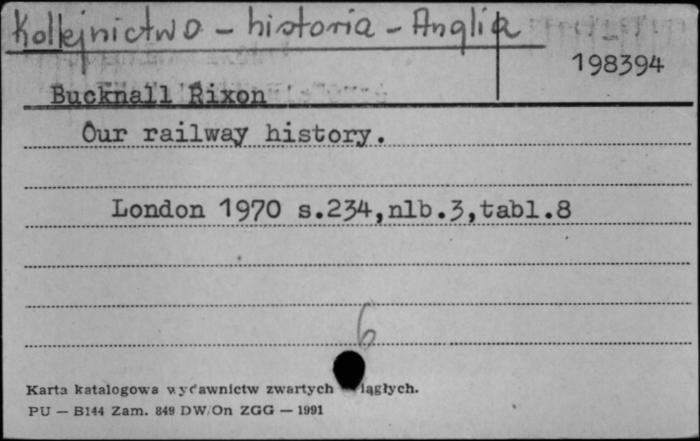 Kollejnictwo - historia - Anglia
198394
Bucknall Rixon
Our railway history.
London 1970 s.234,nlb.3,tabl.8
6
Karta katalogowa wydawnictw zwartych iągłych.
PU — B144 Zam. 849 DW/On ZGG — 1991